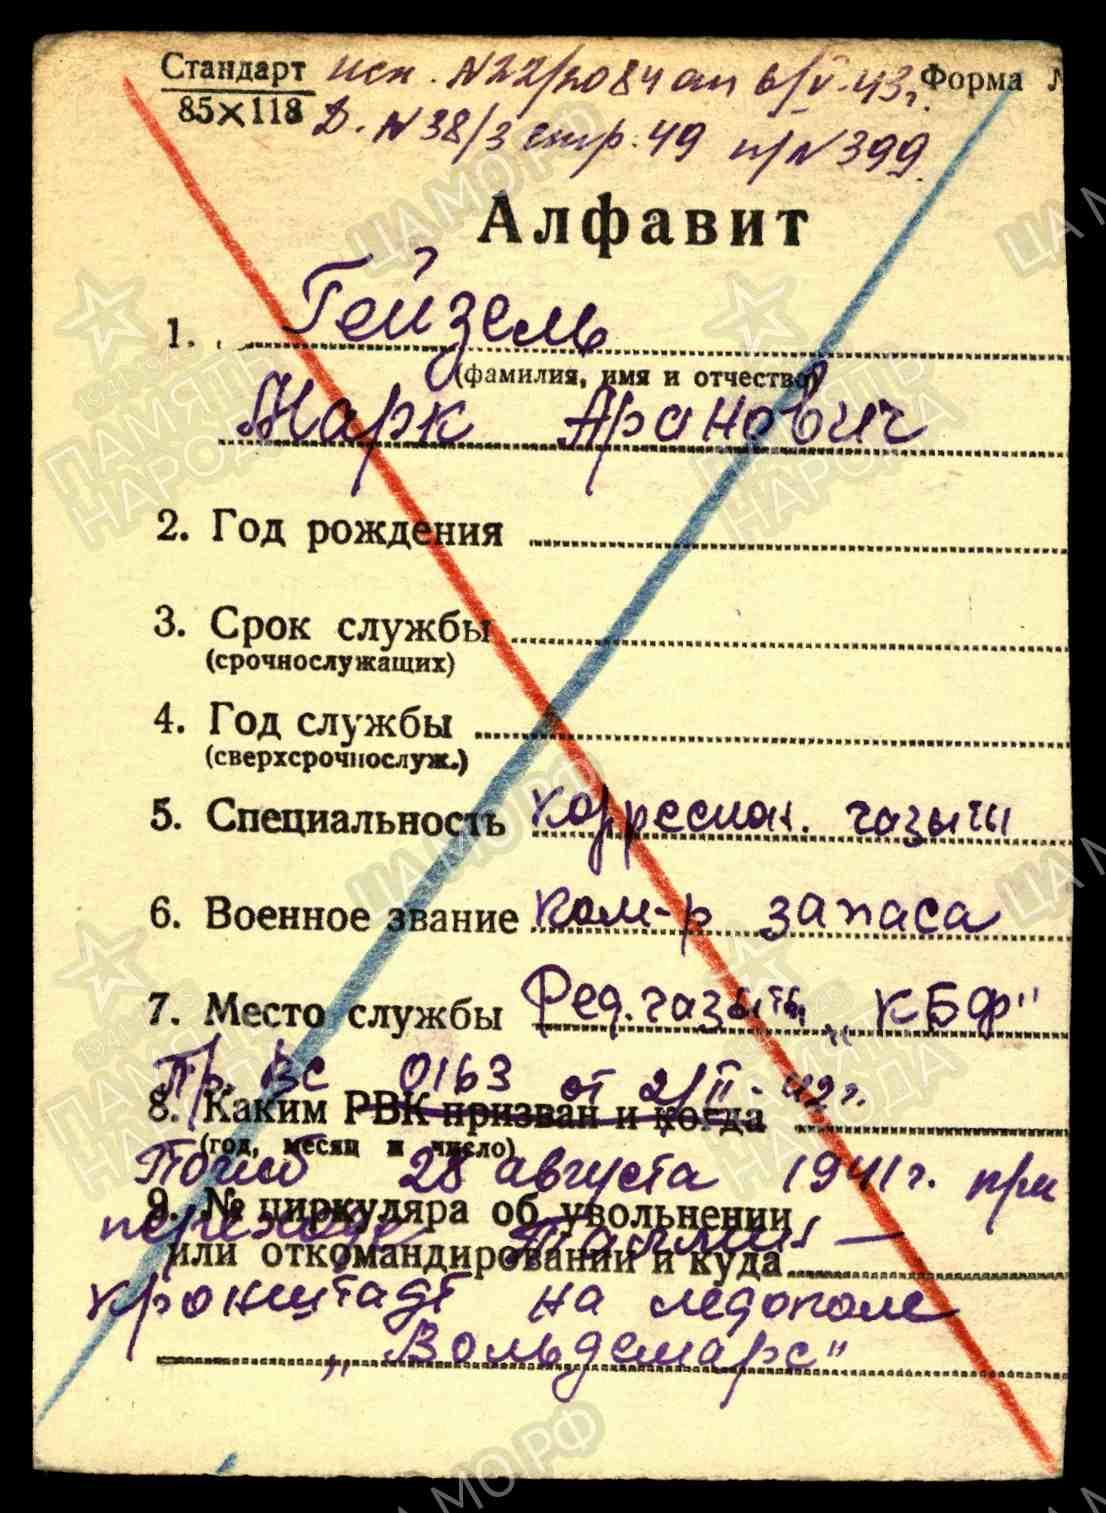 Стандарт исх. №22/2084 от 6/V-43г. Форма №
85×118 Д. №38/3 стр. 49 п/№399
Алфавит
1. Гейзель
(фамилия, имя и отчество)
Марк Аронович
2. Год рождения
3. Срок службы
(срочнослужащих)
4. Год службы
(сверхсрочнослуж.)
5. Специальность корреспон. газыты
6. Военное звание ком-р запаса
7. Место службы Ред. газыты „КБФ"
Пр. ВС 0163 от 2/II-42г.
8. Каким РВК призван и когда
(год, месяц и число)
Погиб 28 августа 1941г. при
9. № циркуляра об увольнении
переходе Таллин –
или откомандировании и куда
Кронштадт на ледоколе
„Вольдемарс"
ЦАМО РФ
ПАМЯТЬ НАРОДА